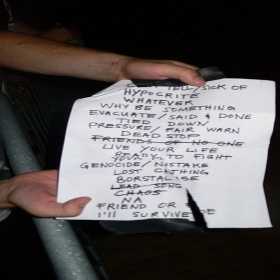 SICK OF
HYPOCRITE
WHATEVER
WHY BE SOMETHING
EVACUATE / SAID & DONE
TIED DOWN
PRESSURE / FAIR WARN
DEAD STOP
FRIENDS OF NO ONE
LIVE YOUR LIFE
READY TO FIGHT
GENOCIDE / MISTAKE
LOST CITHING
BORSTAL SE
LEAD SONG
CHAOS
NA
FRIEND OR
I'LL SURVIVE